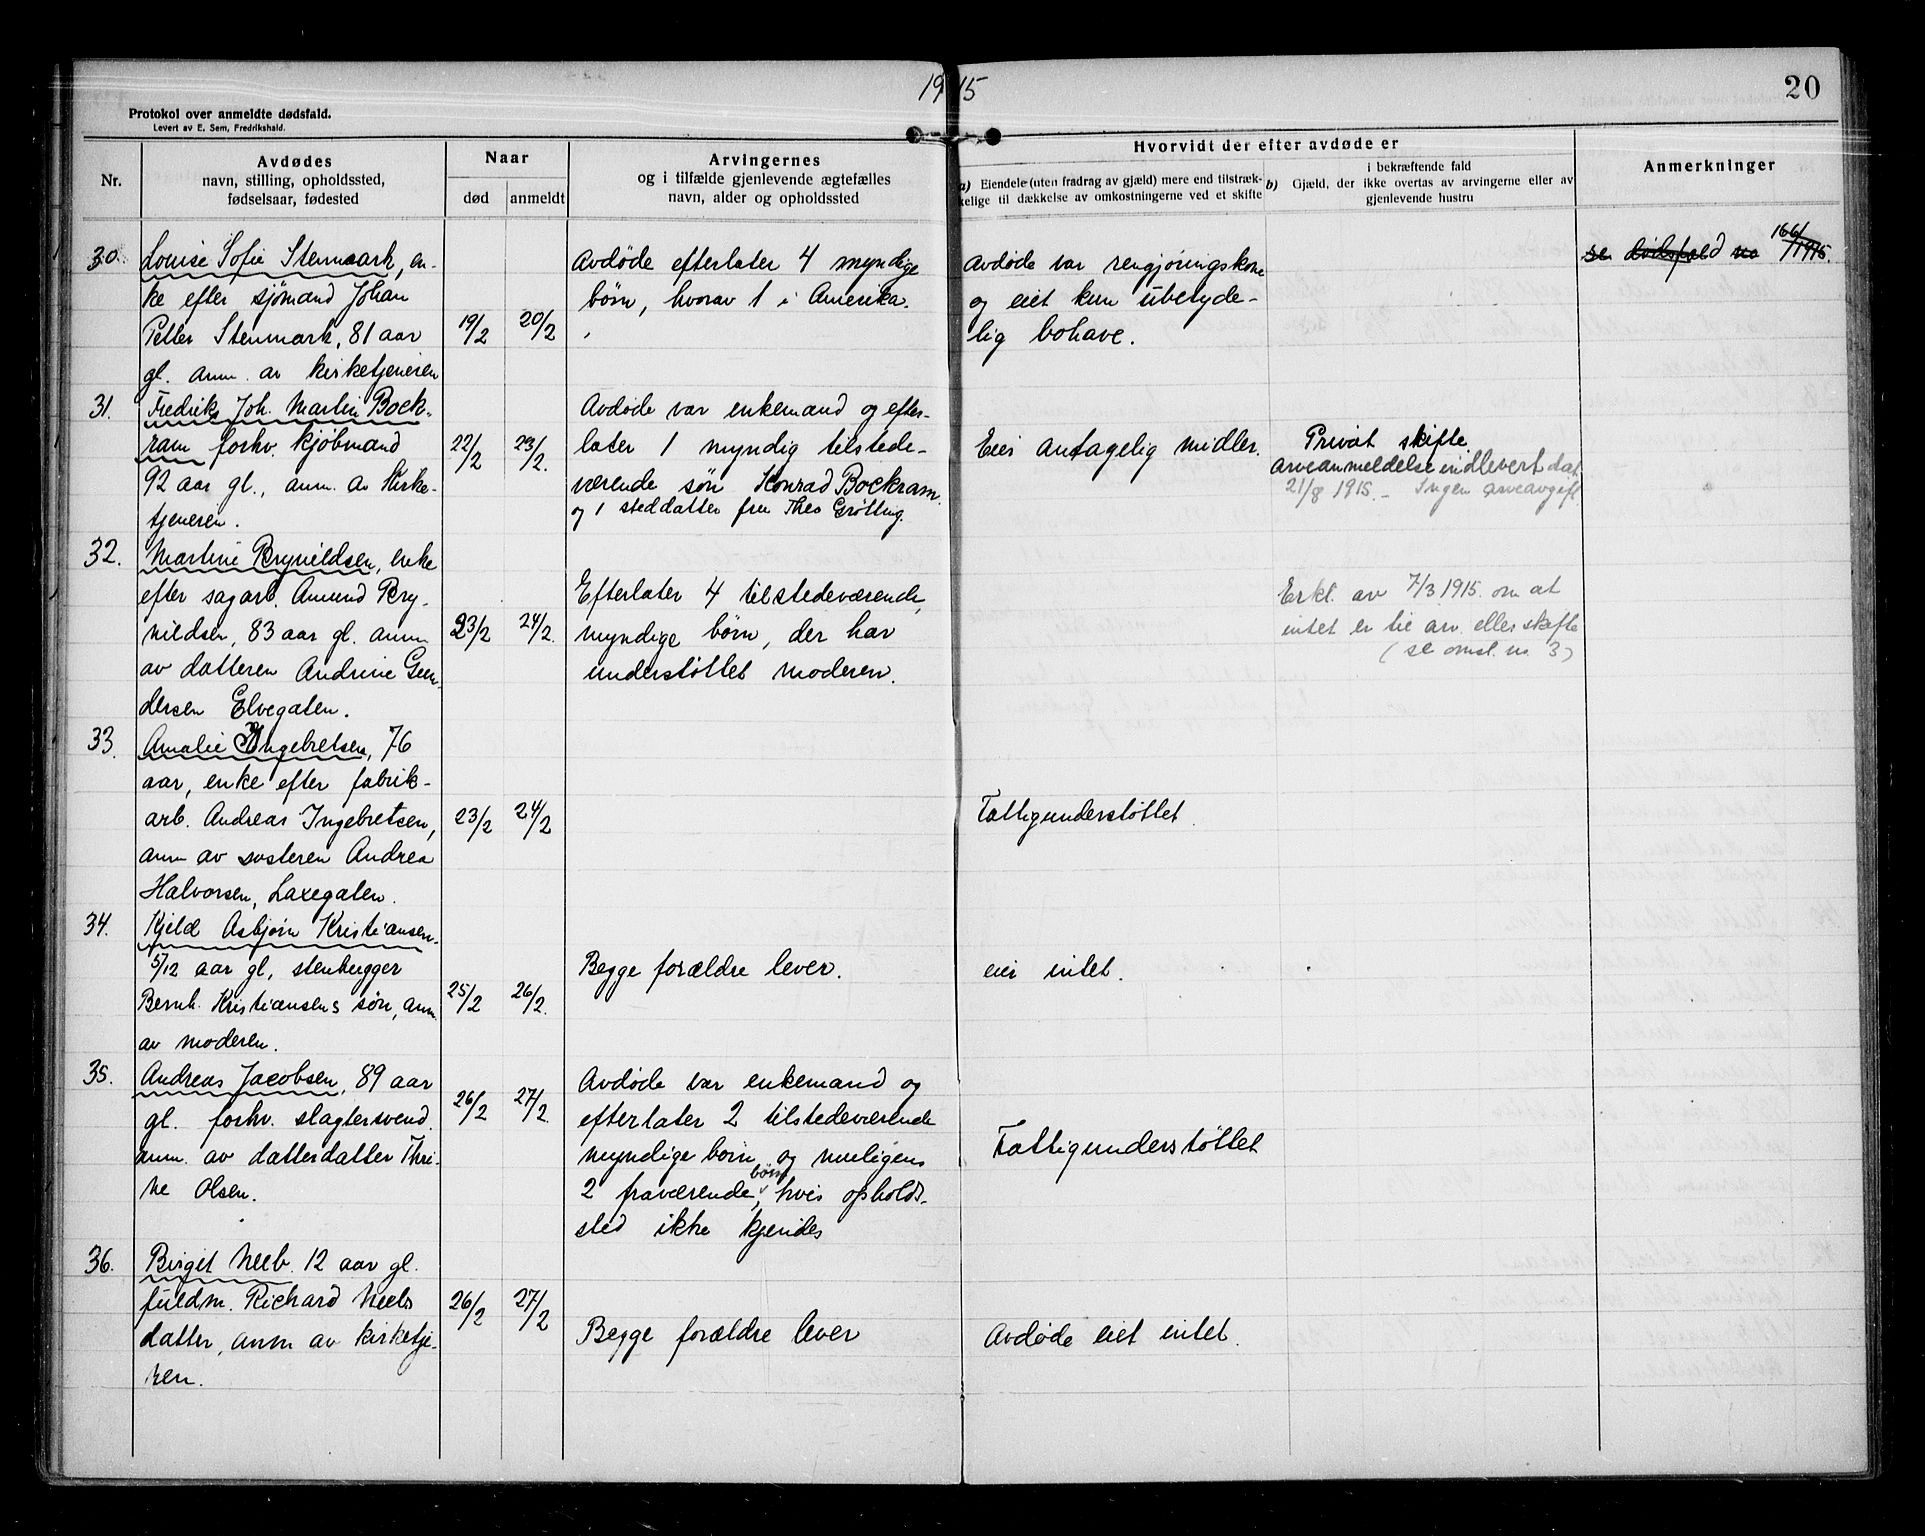 1915
20
Protokol over anmeldte dødsfald.
Levert av E. Sem, Fredrikshald.
Nr.
Avdødes
navn, stilling, opholdssted,
fødselsaar, fødested
Naar
død
anmeldt
Arvingernes
og i tilfælde gjenlevende ægtefælles
navn, alder og opholdssted
Hvorvidt der efter avdøde er
a) Eiendele (uten fradrag av gjæld) mere end tilstræk-
kelige til dækkelse av omkostningerne ved et skifte
i bekræftende fald
b) Gjæld, der ikke overtas av arvingerne eller av
gjenlevende hustru
Anmerkninger
30.
Louise Sofie Stenmark, en-
ke efter sjømand Johan
Petter Stenmark, 81 aar
gl. anm. av kirketjeneren
19/2
20/2
Avdøde efterlater 4 myndige
børn, hvorav 1 i Amerika.
Avdøde var rengjøringskone
og eiet kun ubetyde-
lig bohave.
se dødsfald no 166/1915.
31.
Fredrik Joh. Martin Bock-
ram forhv. kjøbmand
92 aar gl., anm. av Kirke-
tjeneren.
22/2
23/2.
Avdøde var enkemand og efter-
later 1 myndig tilstede-
værende søn Konrad Bockram.
og 1 steddatter fru Theo Grøtting.
Eier antagelig midler.
Privat skifte.
arveanmeldelse indlevert dat.
21/8 1915. - Ingen arveavgift
32.
Martine Brynildsen, enke
efter sagarb. Amund Bry-
nildsen, 83 aar gl. anm
av datteren Andrine Gun-
dersen Elvegaten.
23/2
24/2.
Efterlater 4 tilstedeværende,
myndige børn, der har
understøttet moderen.
Erkl. av 7/3 1915. om at
intet er til arv eller skifte
(se omsl. no. 3)
33.
Amalie Ingebretsen, 76
aar, enke efter fabrik-
arb. Andreas Ingebretsen,
anm av søsteren Andrea
Halvorsen, Laxegaten.
23/2
24/2
Fattigunderstøttet.
34.
Kjeld Asbjørn Kristiansen.
5/12 aar gl, stenhugger
Bernh. Kristiansens søn, anm.
av moderen.
25/2
26/2.
Begge forældre lever.
eier intet.
35.
Andreas Jacobsen, 89 aar
gl. forhv. slagtersvend.
anm. av datterdatter Thri-
ne Olsen.
26/2
27/2.
Avdøde var enkemand og
efterlater 2 tilstedeværende
myndige børn og muligens
2 fraværende børn, hvis opholds-
sted ikke kjendes
Fattigunderstøttet
36.
Birgit Neeb. 12 aar gl.
fuldm. Richard Neebs
datter, anm av kirketje-
neren.
26/2
27/2
Begge forældre lever
Avdøde eiet intet.